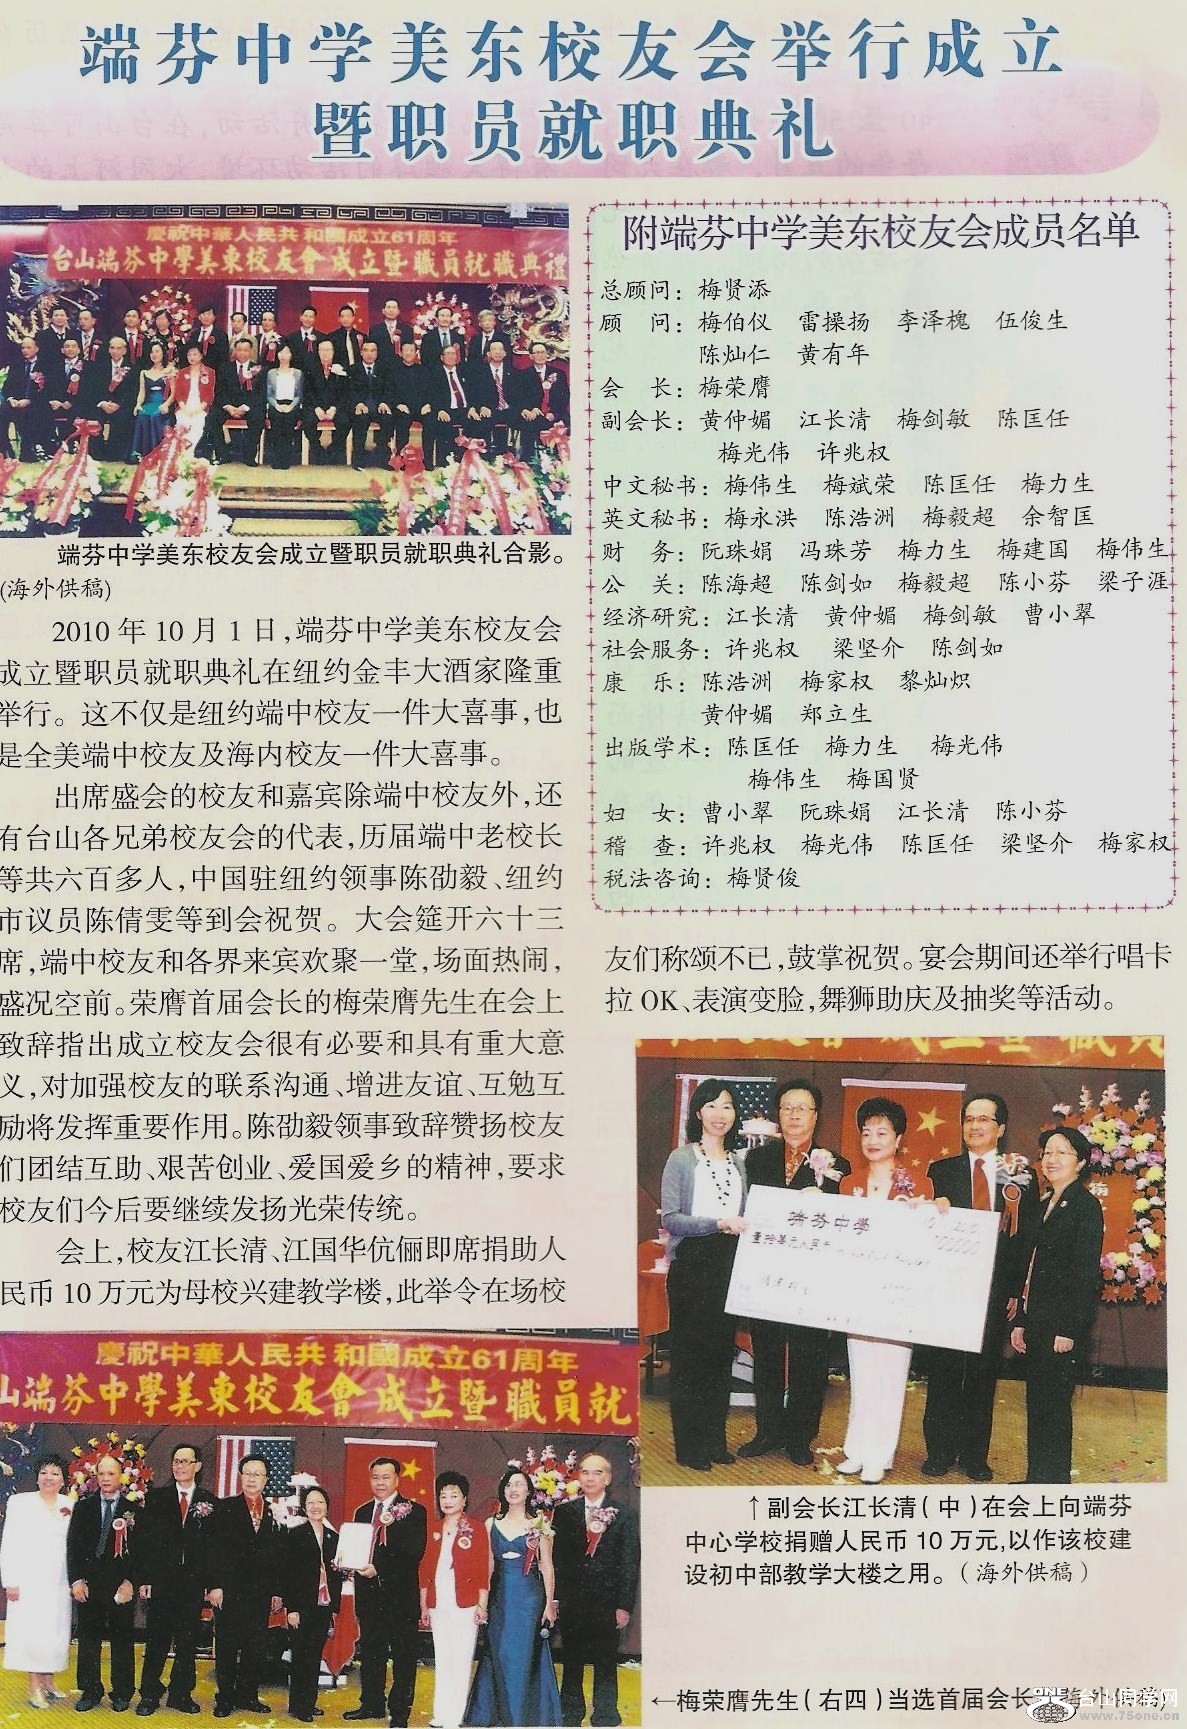 端芬中学美东校友会举行成立
暨职员就职典礼
慶祝中華人民共和國成立61周年
台山端芬中學美東校友會成立暨職員就職典禮
端芬中学美东校友会成立暨职员就职典礼合影。
(海外供稿)
2010年10月1日,端芬中学美东校友会
成立暨职员就职典礼在纽约金丰大酒家隆重
举行。这不仅是纽约端中校友一件大喜事,也
是全美端中校友及海内校友一件大喜事。
出席盛会的校友和嘉宾除端中校友外,还
有台山各兄弟校友会的代表,历届端中老校长
等共六百多人,中国驻纽约领事陈劭毅、纽约
市议员陈倩雯等到会祝贺。大会筵开六十三
席,端中校友和各界来宾欢聚一堂,场面热闹,
盛况空前。荣膺首届会长的梅荣膺先生在会上
致辞指出成立校友会很有必要和具有重大意
义,对加强校友的联系沟通、增进友谊、互勉互
励将发挥重要作用。陈劭毅领事致辞赞扬校友
们团结互助、艰苦创业、爱国爱乡的精神,要求
校友们今后要继续发扬光荣传统。
会上,校友江长清、江国华伉俪即席捐助人
民币10万元为母校兴建教学楼,此举令在场校
附端芬中学美东校友会成员名单
总顾问：梅贤添
顾　问：梅伯仪　雷操扬　李泽槐　伍俊生
陈灿仁　黄有年
会　长：梅荣膺
副会长：黄仲媚　江长清　梅剑敏　陈匡任
梅光伟　许兆权
中文秘书：梅伟生　梅斌荣　陈匡任　梅力生
英文秘书：梅永洪　陈浩洲　梅毅超　余智匡
财　务：阮珠娟　冯珠芳　梅力生　梅建国　梅伟生
公　关：陈海超　陈剑如　梅毅超　陈小芬　梁子涯
经济研究：江长清　黄仲媚　梅剑敏　曹小翠
社会服务：许兆权　梁坚介　陈剑如
康　乐：陈浩洲　梅家权　黎灿炽
黄仲媚　郑立生
出版学术：陈匡任　梅力生　梅光伟
梅伟生　梅国贤
妇　女：曹小翠　阮珠娟　江长清　陈小芬
稽　查：许兆权　梅光伟　陈匡任　梁坚介　梅家权
税法咨询：梅贤俊
友们称颂不已,鼓掌祝贺。宴会期间还举行唱卡
拉OK、表演变脸,舞狮助庆及抽奖等活动。
端芬中學
↑副会长江长清(中)在会上向端芬
中心学校捐赠人民币10万元,以作该校建
设初中部教学大楼之用。(海外供稿)
慶祝中華人民共和國成立61周年
山端芬中學美東校友會成立暨職員就
←梅荣膺先生(右四)当选首届会长
ONE 台山同学网
www.75one.cn